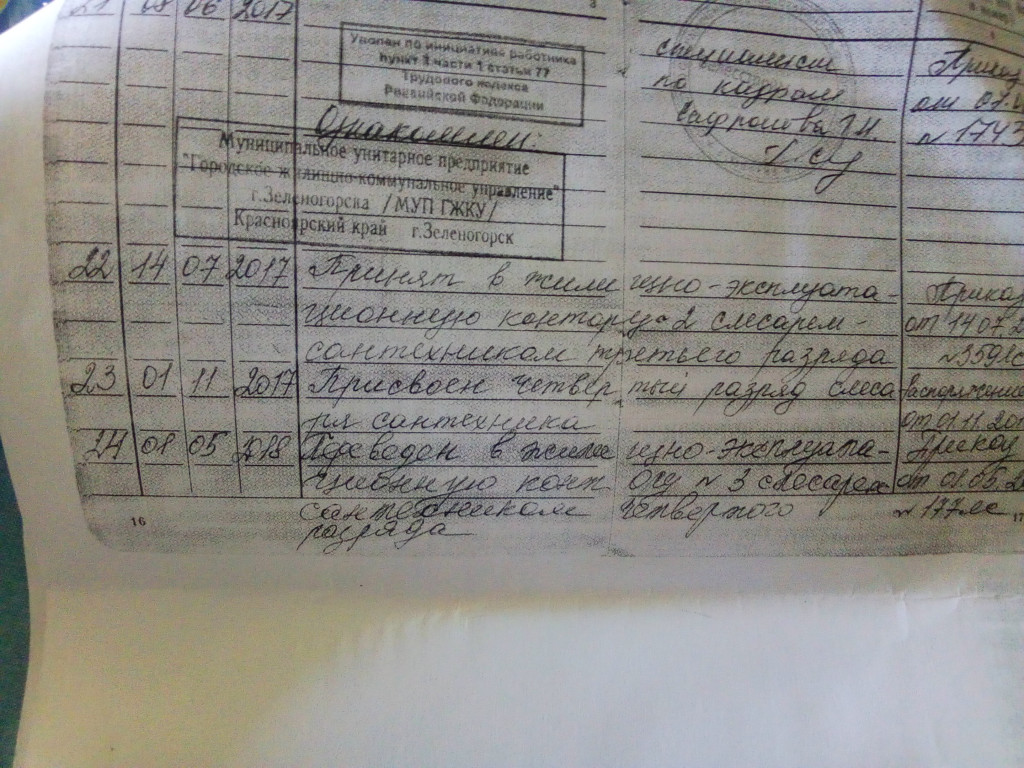 21 08 06 2017
Уволен по инициативе работника
пункт 3 части 1 статьи 77
Трудового кодекса
Российской Федерации
специалист
по кадрам
от 07.
№ 1743
Ознакомлен:
Муниципальное унитарное предприятие
"Городское жилищно-коммунальное управление"
г.Зеленогорска /МУП ГЖКУ/
Красноярский край г.Зеленогорск
22 14 07 2017 Принят в жилищно-эксплуата- Приказ
ционную контору 2 слесарем- от 14.07.2
сантехником третьего разряда № 359лс
23 01 11 2017 Присвоен четвертый разряд слеса Распоряжение
ря сантехника от 01.11.201
24 01 05 2018 Переведен в жилищно-эксплуата- Приказ
ционную контору № 3 слесарем от 01.05.20
сантехником четвертого № 177лс
разряда
16
17